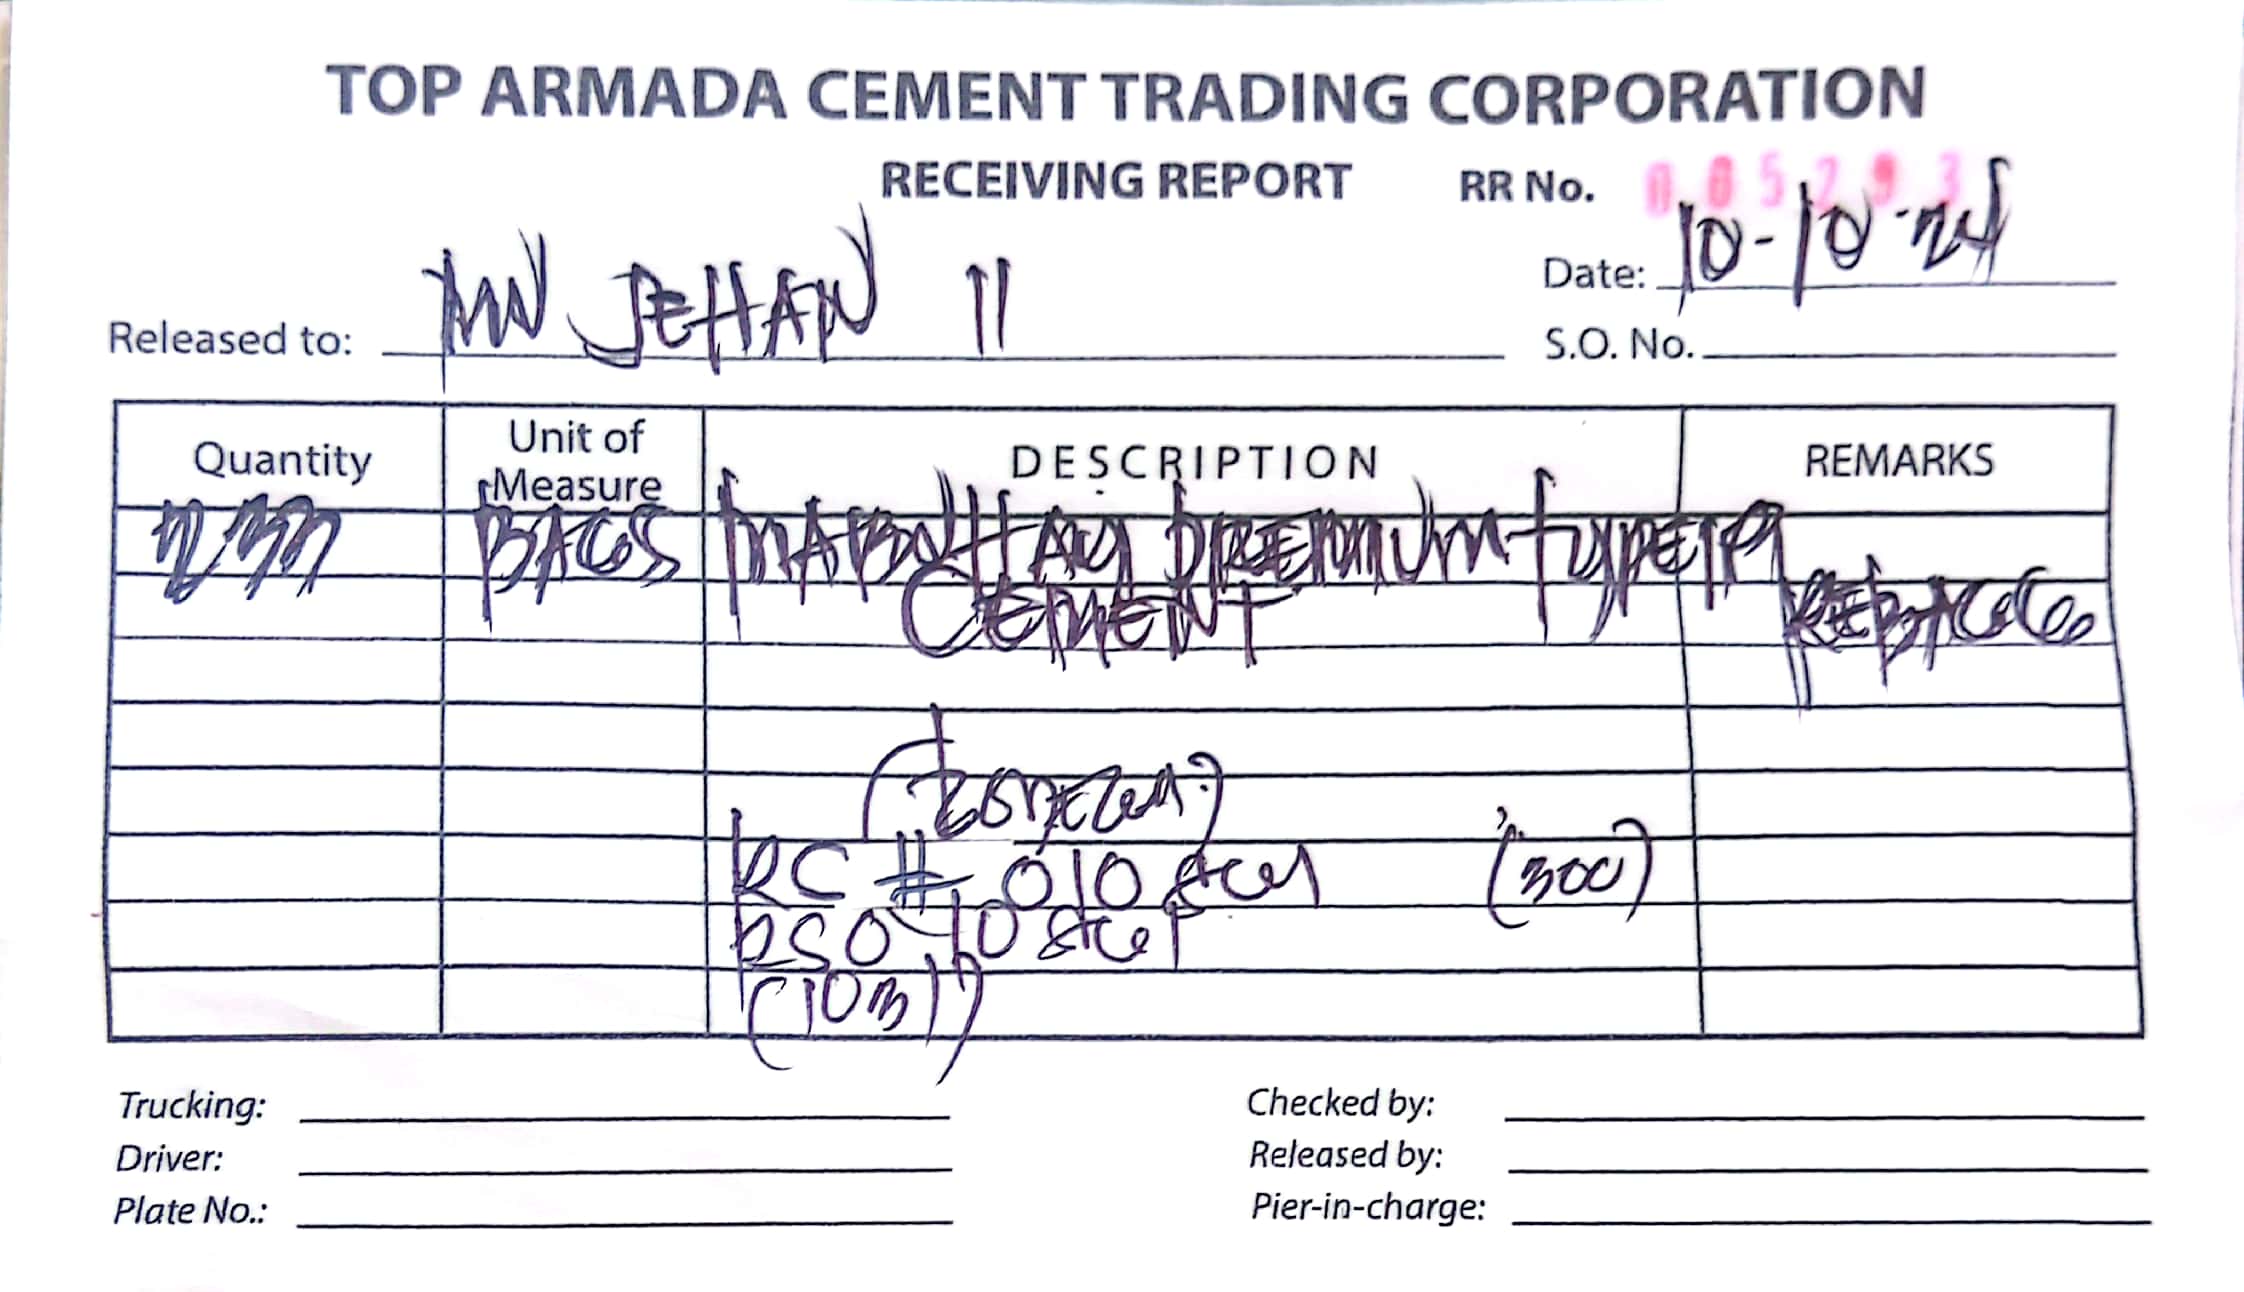 TOP ARMADA CEMENT TRADING CORPORATION
RECEIVING REPORT RR No. 005293
Date: 10-10-24
Released to: MV JEHAN II
S.O. No.
Quantity Unit of Measure DESCRIPTION REMARKS
233 BAGS MABUHAY PREMIUM TYPE 1P
CEMENT REBAGG
RC # 010 (300)
RSO 10
(1031)
Trucking: Checked by:
Driver: Released by:
Plate No.: Pier-in-charge: